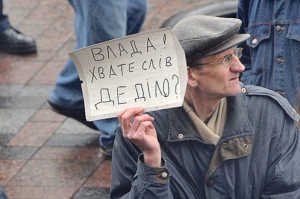 ВЛАДА!
ХВАТЕ СЛІВ
ДЕ ДІЛО?